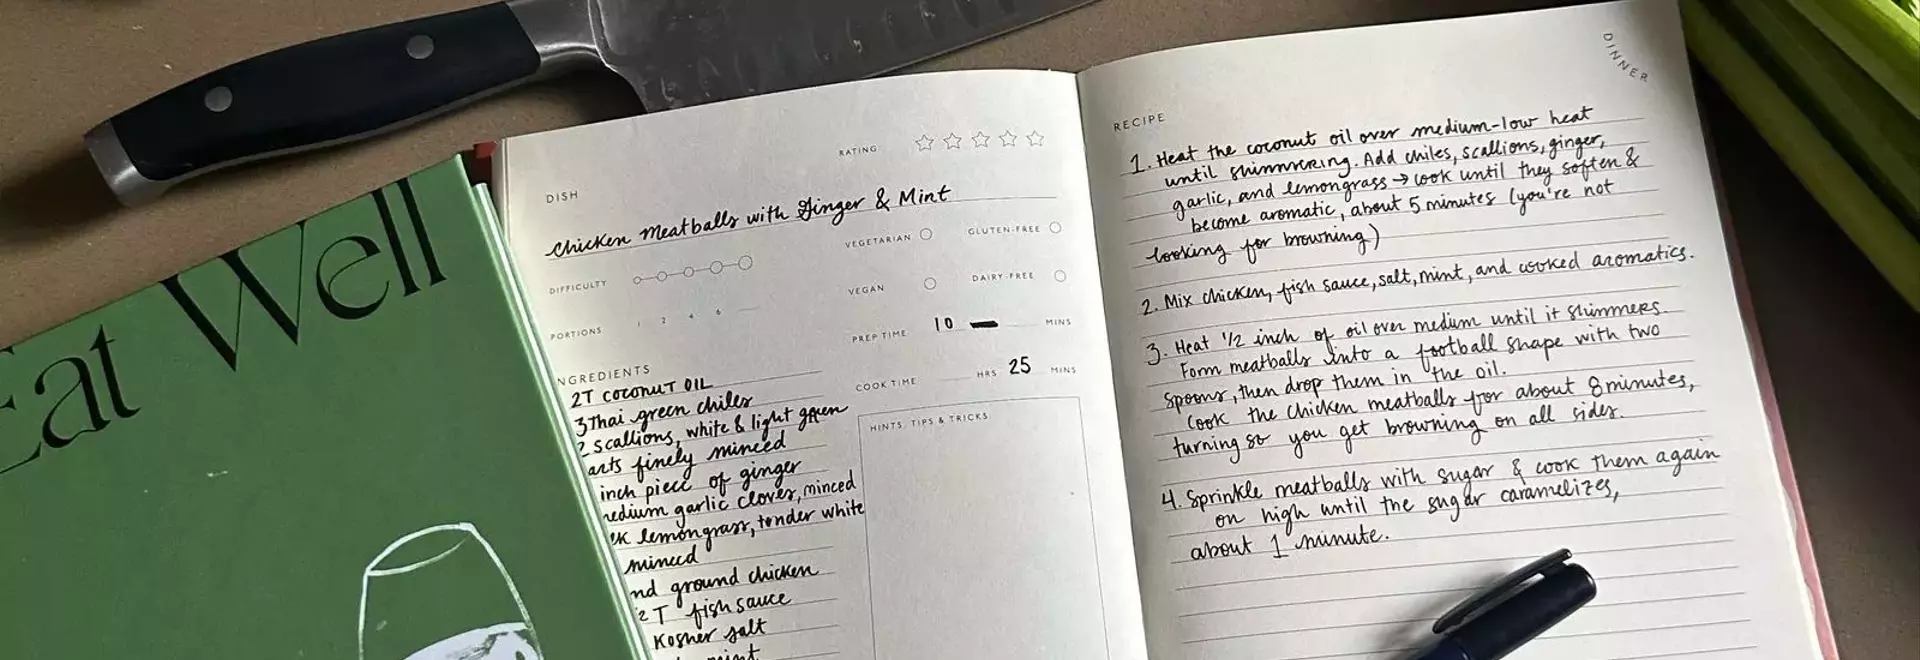 Eat Well
RATING
DISH
Chicken Meatballs with Ginger & Mint
VEGETARIAN
GLUTEN-FREE
DIFFICULTY
VEGAN
DAIRY-FREE
PORTIONS
1 2 4 6
PREP TIME 10 MINS
COOK TIME HRS 25 MINS
NGREDIENTS
2T coconut OIL
3 Thai green chiles
2 scallions, white & light green
arts finely minced
inch piece of ginger
edium garlic cloves, minced
lemongrass, tender white
minced
nd ground chicken
2 T fish sauce
Kosher salt
mint
HINTS, TIPS & TRICKS
DINNER
RECIPE
1. Heat the coconut oil over medium-low heat
until shimmering. Add chiles, scallions, ginger,
garlic, and lemongrass → cook until they soften &
become aromatic, about 5 minutes (you're not
looking for browning)
2. Mix chicken, fish sauce, salt, mint, and cooked aromatics.
3. Heat 1/2 inch of oil over medium until it shimmers.
Form meatballs into a football shape with two
spoons, then drop them in the oil.
Cook the chicken meatballs for about 8 minutes,
turning so you get browning on all sides.
4. Sprinkle meatballs with sugar & cook them again
on high until the sugar caramelizes,
about 1 minute.